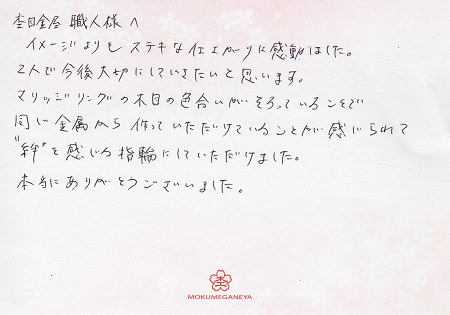 杢目金屋 職人様へ
イメージよりもステキな仕上がりに感動しました。
2人で今後大切にしていきたいと思います。
マリッジリングの木目の色合いがそろっていることで
同じ金属から作っていただけていることが感じられて
"絆"を感じる指輪にしていただけました。
本当にありがとうございました。
杢
MOKUMEGANEYA